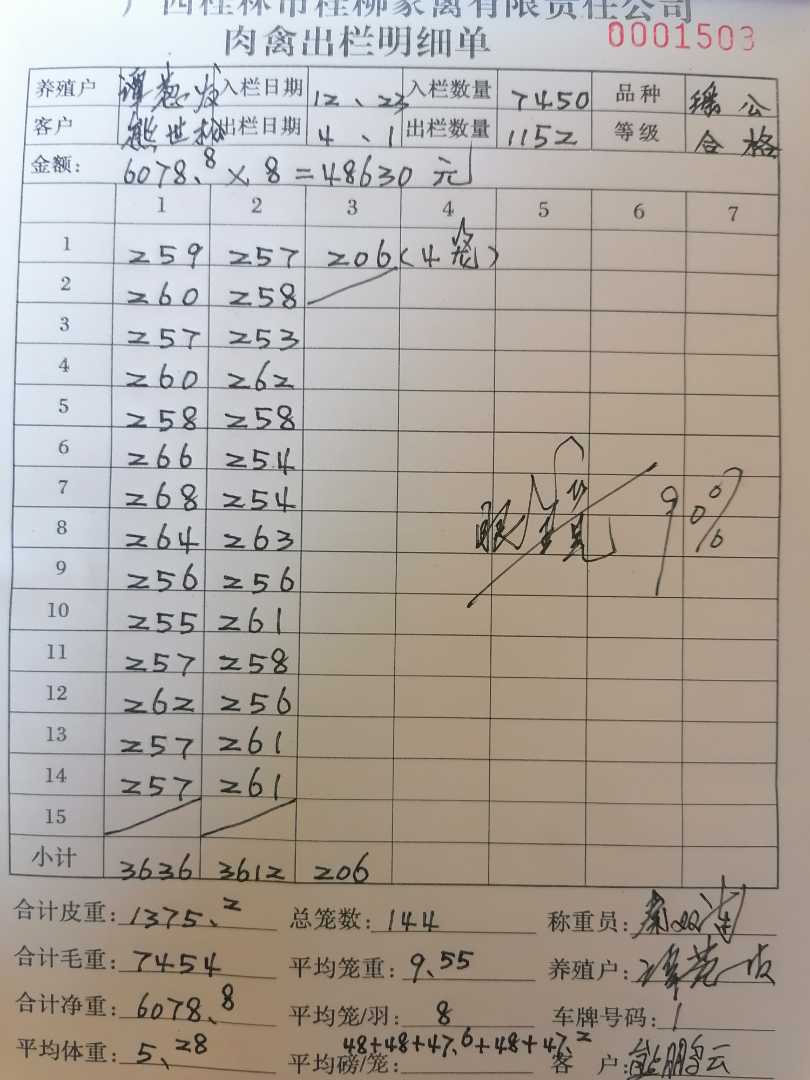 广西桂林市桂柳家禽有限责任公司
肉禽出栏明细单 0001503
养殖户 入栏日期 12、23 入栏数量 7450 品种 瑶公
客户 熊世林 出栏日期 4、1 出栏数量 1152 等级 合格
金额: 6078、8 × 8 = 48630 元
1 2 3 4 5 6 7
1 259 257 206 (4笼)
2 260 258
3 257 253
4 260 262
5 258 258
6 266 254
7 268 254
8 264 263
9 256 256
10 255 261
11 257 258
12 262 256
13 257 261
14 257 261
15
小计 3636 3612 206
90%
合计皮重: 1375、2 总笼数: 144 称重员:
合计毛重: 7454 平均笼重: 9、55 养殖户:
合计净重: 6078、8 平均笼/羽: 8 车牌号码: 1
平均体重: 5、28 平均磅/笼: 48+48+47、6+48+47、2 客户: 熊鹏云